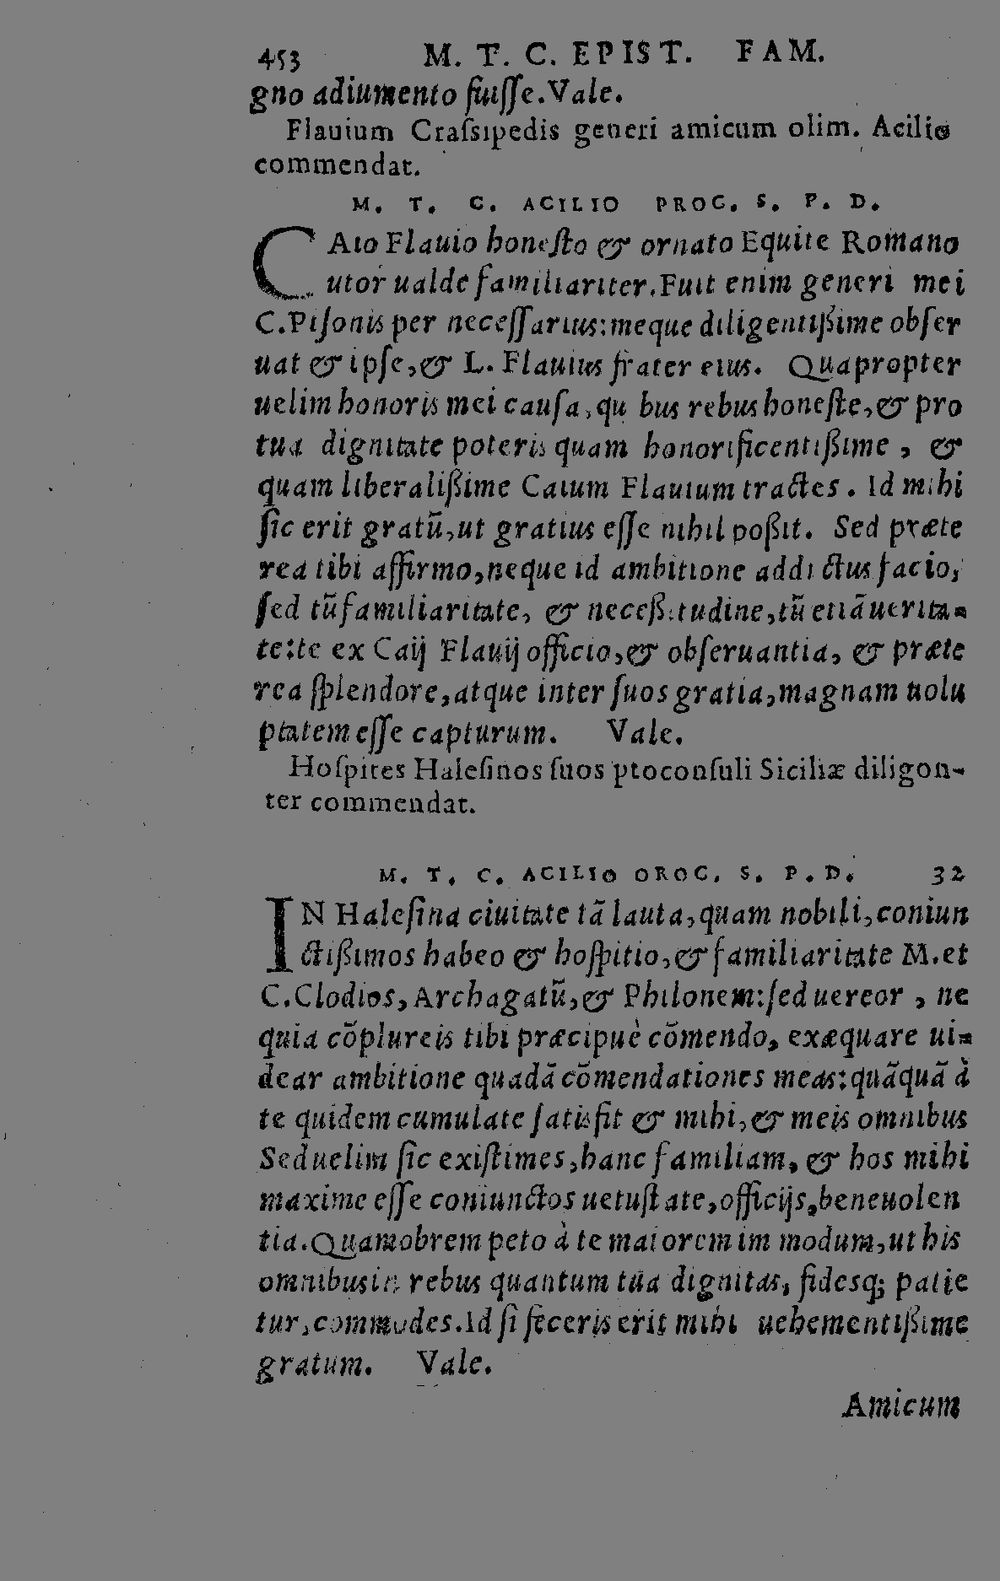 453 M. T. C. EPIST. FAM.
gno adiumento fuiſſe.Vale.
Flauium Craſsipedis generi amicum olim. Acilio
commendat.
M. T. C. ACILIO PROC. S. P. D.
CAIo Flauio honeſto & ornato Equite Romano
utor ualde familiariter.Fuit enim generi mei
C.Piſonis per neceſſarius:meque diligentißime obſer
uat & ipſe,& L. Flauius frater eius. Quapropter
uelim honoris mei cauſa, qu bus rebus honeſte,& pro
tua dignitate poteris quam honorificentißime , &
quam liberalißime Caium Flauium tractes . Id mihi
ſic erit gratū,ut gratius eſſe nihil poßit. Sed præte
rea tibi affirmo,neque id ambitione addi ctus facio,
ſed tū familiaritate, & neceßitudine,tū etiā uerita-
te:te ex Caij Flauij officio,& obſeruantia, & præte
rea ſplendore,atque inter ſuos gratia,magnam uolu
ptatem eſſe capturum. Vale.
Hoſpites Haleſinos ſuos ptoconſuli Siciliæ diligon-
ter commendat.
M. T. C. ACILIO OROC. S. P. D. 32
IN Haleſina ciuitate tā lauta,quam nobili,coniun
ctißimos habeo & hoſpitio,& familiaritate M.et
C.Clodios, Archagatū,& Philonem:ſed uereor , ne
quia cōplureis tibi præcipuè cōmendo, exæquare ui-
dear ambitione quadā cōmendationes meas:quāquā à
te quidem cumulate ſatisfit & mihi,& meis omnibus
Sed uelim ſic exiſtimes,hanc familiam, & hos mihi
maxime eſſe coniunctos uetuſtate,officijs,beneuolen
tia.Quamobrem peto à te maiorem im modum,ut his
omnibus in rebus quantum tua dignitas, fidesq; patie
tur,commodes.Id ſi feceris erit mihi uehementißime
gratum. Vale.
Amicum